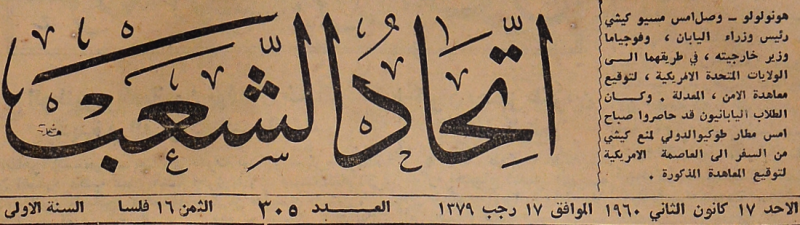 هونولولو – وصل امس مسيو كيشي
رئيس وزراء اليابان ، وفوجياما
وزير خارجيته ، في طريقهما الى
الولايات المتحدة الامريكية ، لتوقيع
معاهدة الامن ، المعدلة . وكان
الطلاب اليابانيون قد حاصروا صباح
امس مطار طوكيو الدولي لمنع كيشي
من السفر الى العاصمة الامريكية
لتوقيع المعاهدة المذكورة .
اتحاد الشعب
الاحد ١٧ كانون الثاني ١٩٦٠ الموافق ١٧ رجب ١٣٧٩ العـــدد ٣٠٥ الثمن ١٦ فلسا السنة الاولى